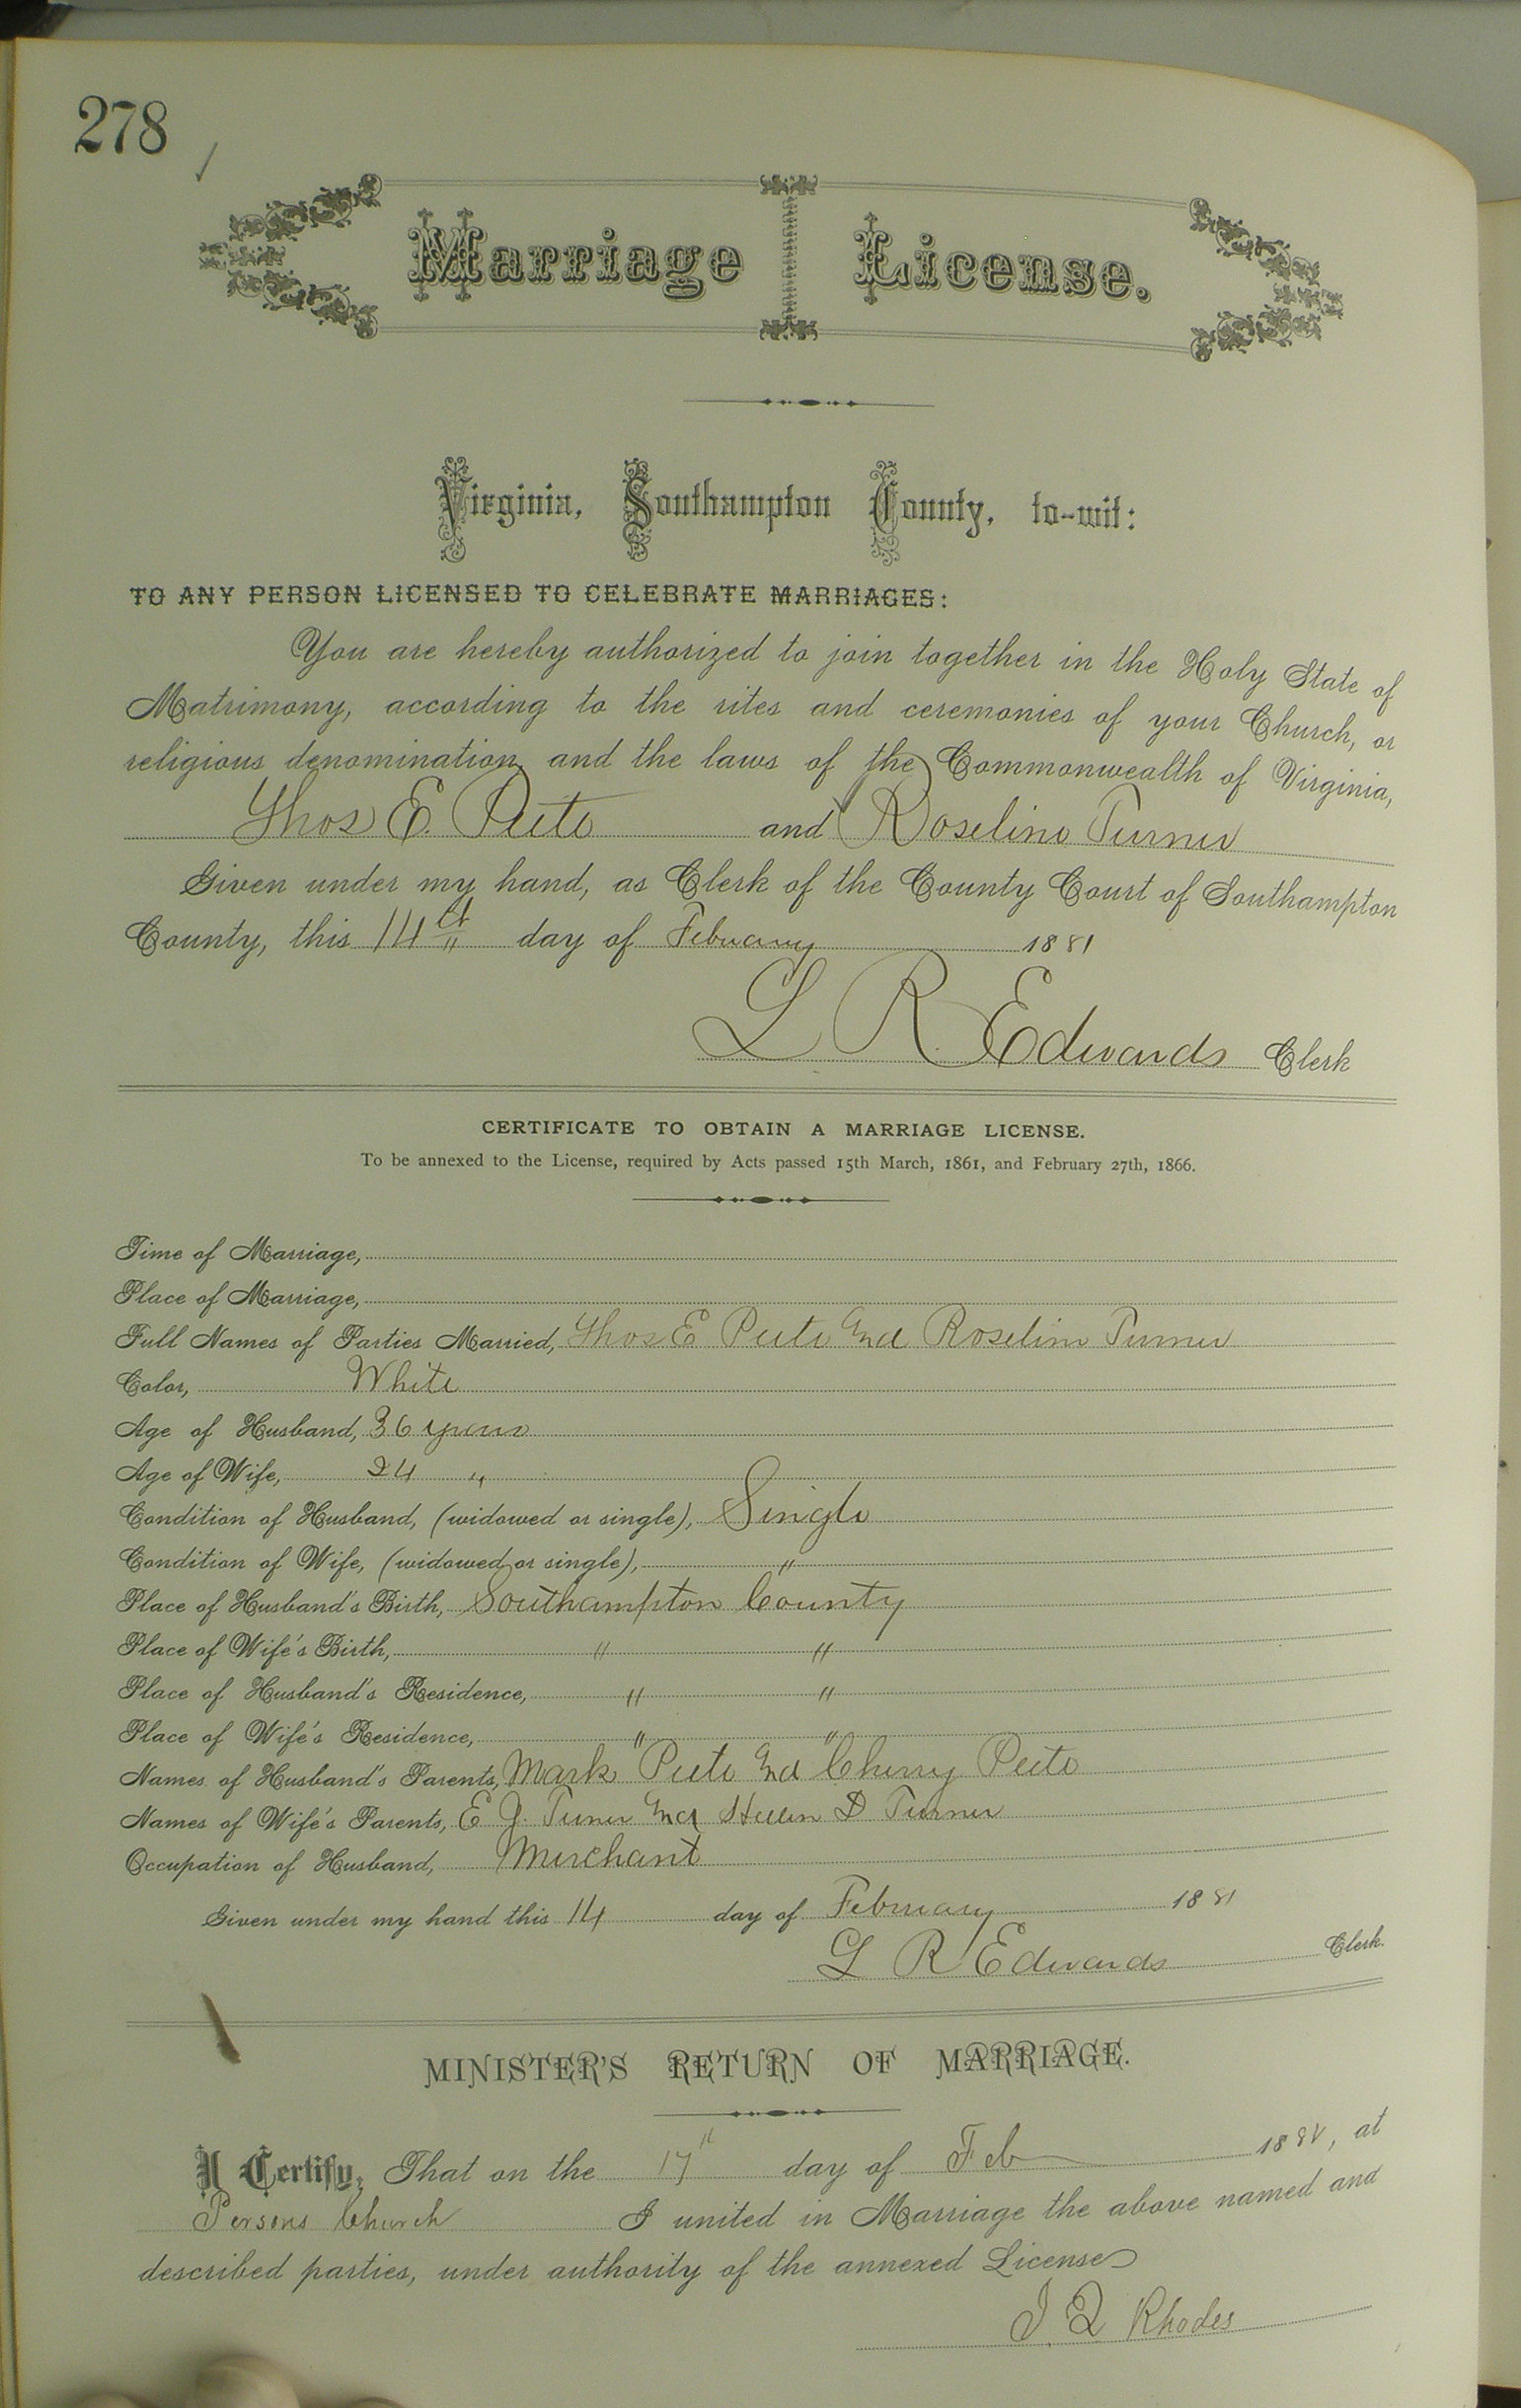 278
Marriage License.
Virginia, Southampton County, to-wit:
TO ANY PERSON LICENSED TO CELEBRATE MARRIAGES:
You are hereby authorized to join together in the Holy State of
Matrimony, according to the rites and ceremonies of your Church, or
religious denomination, and the laws of the Commonwealth of Virginia,
Thos E. Pete and Roseline Turner
Given under my hand, as Clerk of the County Court of Southampton
County, this 14th day of February 1881
L R Edwards Clerk
CERTIFICATE TO OBTAIN A MARRIAGE LICENSE.
To be annexed to the License, required by Acts passed 15th March, 1861, and February 27th, 1866.
Time of Marriage,
Place of Marriage,
Full Names of Parties Married, Thos E Pete and Roseline Turner
Color, White
Age of Husband, 36 years
Age of Wife, 24 "
Condition of Husband, (widowed or single), Single
Condition of Wife, (widowed or single), "
Place of Husband's Birth, Southampton County
Place of Wife's Birth, " "
Place of Husband's Residence, " "
Place of Wife's Residence, " "
Names of Husband's Parents, Mark Pete and Cherry Pete
Names of Wife's Parents, E J. Turner and Hellen D Turner
Occupation of Husband, Merchant
Given under my hand this 14 day of February 1881
L R Edwards Clerk.
MINISTER'S RETURN OF MARRIAGE.
I Certify, That on the 17th day of Feb 188 , at
Persons Church I united in Marriage the above named and
described parties, under authority of the annexed License
J. Q Rhodes